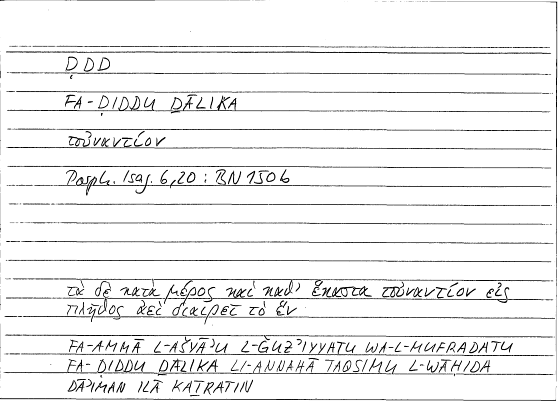 ḌDD
FA-ḌIDDU ḎĀLIKA
τοὐναντίον
Porph. Isag. 6,20 : BN 150b
τὰ δὲ κατὰ μέρος καὶ καθ' ἕκαστα τοὐναντίον εἰς
πλῆθος ἀεὶ διαιρεῖ τὸ ἕν
FA-AMMĀ L-AŠYĀʾU L-ǦUZʾIYYATU WA-L-MUFRADATU
FA-ḌIDDU ḎĀLIKA LI-ANNAHĀ TAQSIMU L-WĀḤIDA
DĀʾIMAN ILĀ KAṮRATIN